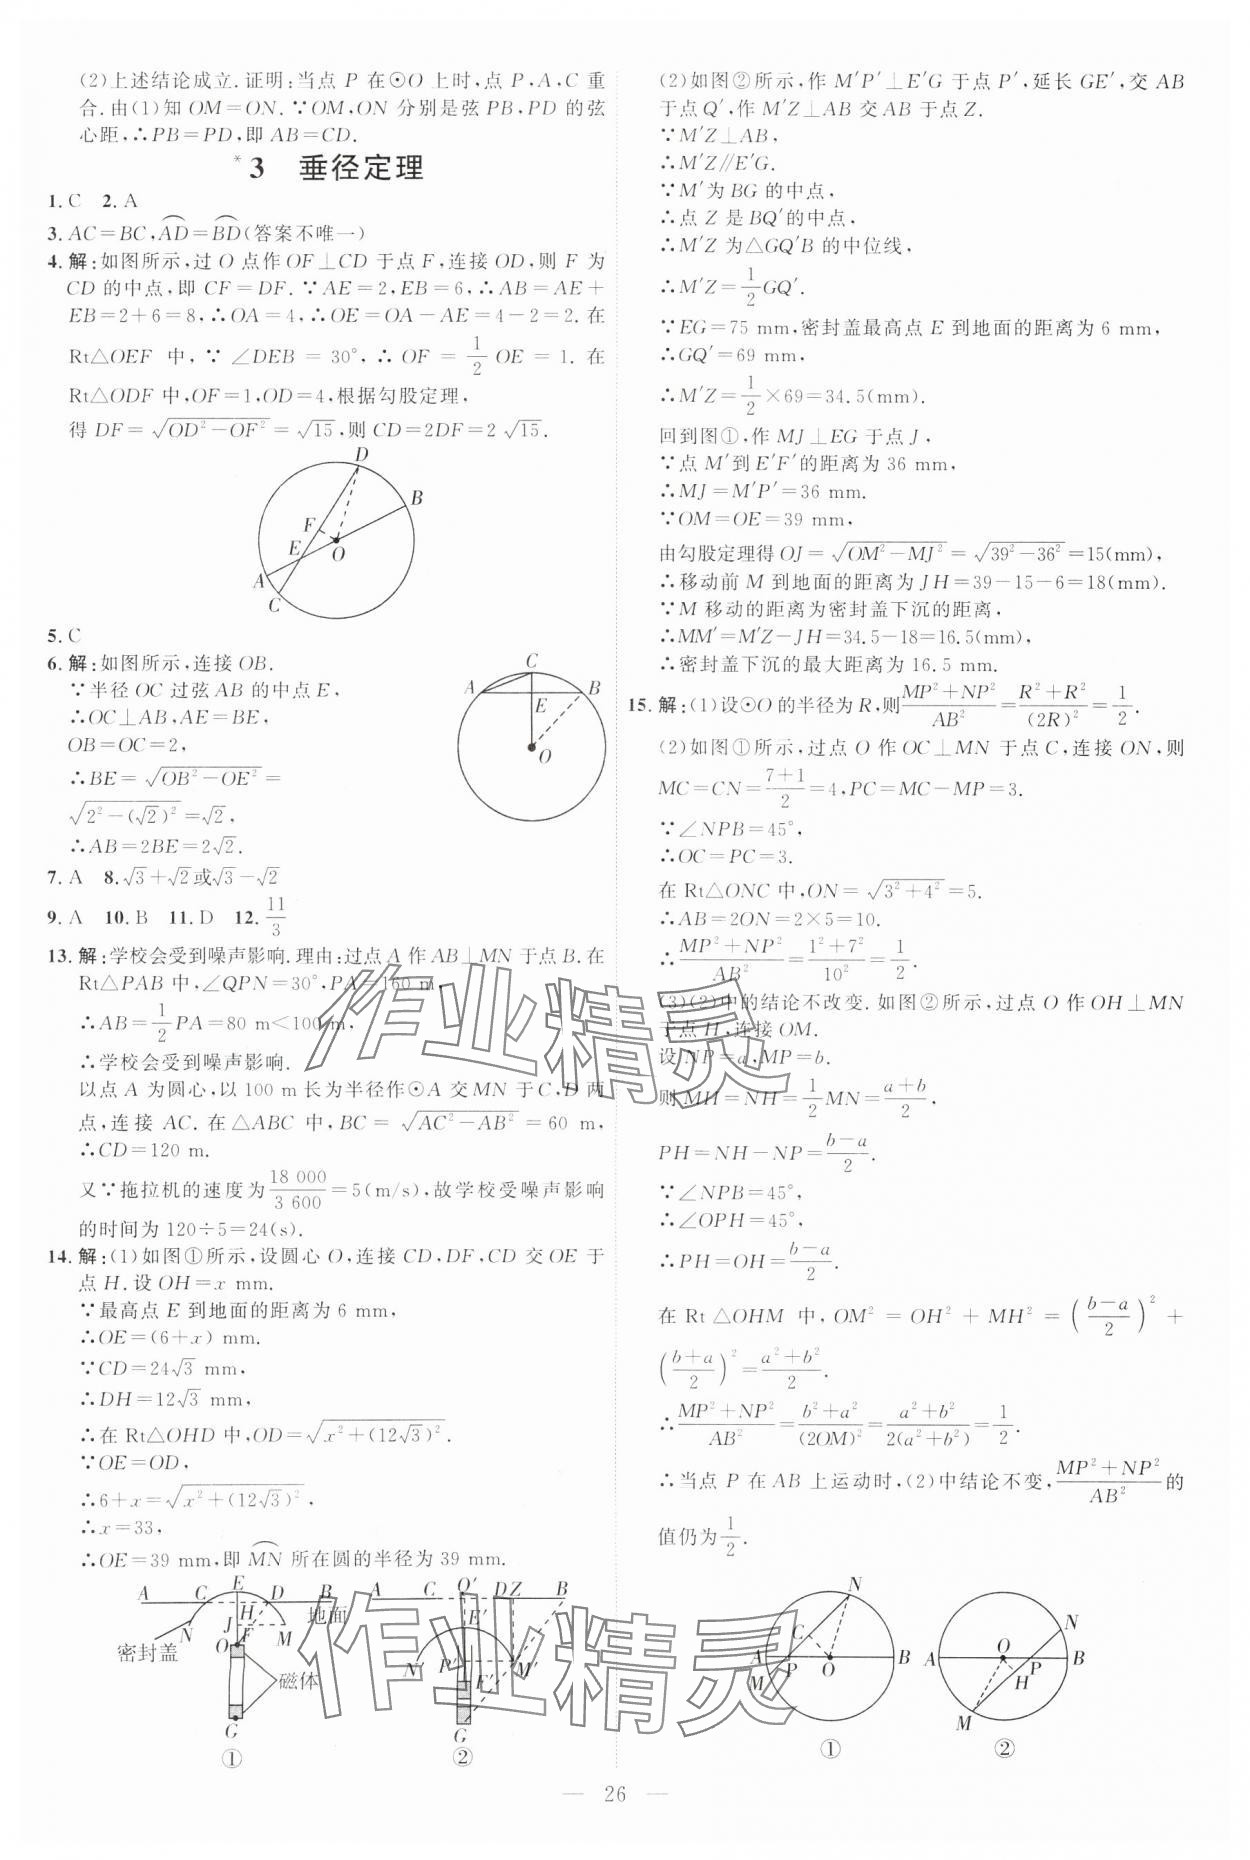 (2)上述结论成立.证明:当点 P 在⊙O 上时,点 P,A,C 重
合.由(1)知 OM=ON.∵OM,ON 分别是弦 PB,PD 的弦
心距,∴PB=PD,即 AB=CD.
*3 垂径定理
1.C 2.A
3.AC=BC,⌒AD=⌒BD(答案不唯一)
4.解:如图所示,过 O 点作 OF⊥CD 于点 F,连接 OD,则 F 为
CD 的中点,即 CF=DF.∵AE=2,EB=6,∴AB=AE+
EB=2+6=8,∴OA=4,∴OE=OA-AE=4-2=2.在
Rt△OEF 中,∵∠DEB=30°,∴OF=1/2 OE=1.在
Rt△ODF 中,OF=1,OD=4,根据勾股定理,
得 DF=√(OD²-OF²)=√15,则 CD=2DF=2√15.
D
B
F
E
O
A
C
5.C
6.解:如图所示,连接 OB.
∵半径 OC 过弦 AB 的中点 E,
∴OC⊥AB,AE=BE,
OB=OC=2,
∴BE=√(OB²-OE²)=
√(2²-(√2)²)=√2,
∴AB=2BE=2√2.
C
A
B
E
O
7.A 8.√3+√2或√3-√2
9.A 10.B 11.D 12.11/3
13.解:学校会受到噪声影响.理由:过点 A 作 AB⊥MN 于点 B.在
Rt△PAB 中,∠QPN=30°,PA=160 m,
∴AB=1/2 PA=80 m<100 m,
∴学校会受到噪声影响.
以点 A 为圆心,以 100 m 长为半径作⊙A 交 MN 于 C,D 两
点,连接 AC.在△ABC 中,BC=√(AC²-AB²)=60 m,
∴CD=120 m.
又∵拖拉机的速度为18 000/3 600=5(m/s),故学校受噪声影响
的时间为 120÷5=24(s).
14.解:(1)如图①所示,设圆心 O,连接 CD,DF,CD 交 OE 于
点 H.设 OH=x mm.
∵最高点 E 到地面的距离为 6 mm,
∴OE=(6+x) mm.
∵CD=24√3 mm,
∴DH=12√3 mm,
∴在 Rt△OHD 中,OD=√(x²+(12√3)²).
∵OE=OD,
∴6+x=√(x²+(12√3)²),
∴x=33,
∴OE=39 mm,即 ⌒MN 所在圆的半径为 39 mm.
A C E D B
H 地面
N J F M
密封盖 O
磁体
G
①
A C Q′ D Z B
E′
N′ P′ M′
F′
G
②
(2)如图②所示,作 M′P′⊥E′G 于点 P′,延长 GE′,交 AB
于点 Q′,作 M′Z⊥AB 交 AB 于点 Z.
∵M′Z⊥AB,
∴M′Z∥E′G.
∵M′为 BG 的中点,
∴点 Z 是 BQ′的中点,
∴M′Z 为△GQ′B 的中位线,
∴M′Z=1/2 GQ′.
∵EG=75 mm,密封盖最高点 E 到地面的距离为 6 mm,
∴GQ′=69 mm,
∴M′Z=1/2×69=34.5(mm).
回到图①,作 MJ⊥EG 于点 J,
∵点 M′到 E′F′的距离为 36 mm,
∴MJ=M′P′=36 mm.
∵OM=OE=39 mm,
由勾股定理得 OJ=√(OM²-MJ²)=√(39²-36²)=15(mm),
∴移动前 M 到地面的距离为 JH=39-15-6=18(mm).
∵M 移动的距离为密封盖下沉的距离,
∴MM′=M′Z-JH=34.5-18=16.5(mm),
∴密封盖下沉的最大距离为 16.5 mm.
15.解:(1)设⊙O 的半径为 R,则(MP²+NP²)/AB²=(R²+R²)/(2R)²=1/2.
(2)如图①所示,过点 O 作 OC⊥MN 于点 C,连接 ON,则
MC=CN=(7+1)/2=4,PC=MC-MP=3.
∵∠NPB=45°,
∴OC=PC=3.
在 Rt△ONC 中,ON=√(3²+4²)=5.
∴AB=2ON=2×5=10.
∴(MP²+NP²)/AB²=(1²+7²)/10²=1/2.
(3)(2)中的结论不改变.如图②所示,过点 O 作 OH⊥MN
于点 H,连接 OM.
设 NP=a,MP=b.
则 MH=NH=1/2 MN=(a+b)/2,
PH=NH-NP=(b-a)/2.
∵∠NPB=45°,
∴∠OPH=45°,
∴PH=OH=(b-a)/2.
在 Rt△OHM 中,OM²=OH²+MH²=((b-a)/2)²+
((b+a)/2)²=(a²+b²)/2.
∴(MP²+NP²)/AB²=(b²+a²)/(2OM)²=(a²+b²)/2(a²+b²)=1/2.
∴当点 P 在 AB 上运动时,(2)中结论不变,(MP²+NP²)/AB²的
值仍为1/2.
N
C
A P O B
M
①
N
O
A P B
H
M
②
作业精灵
作业精灵
— 26 —